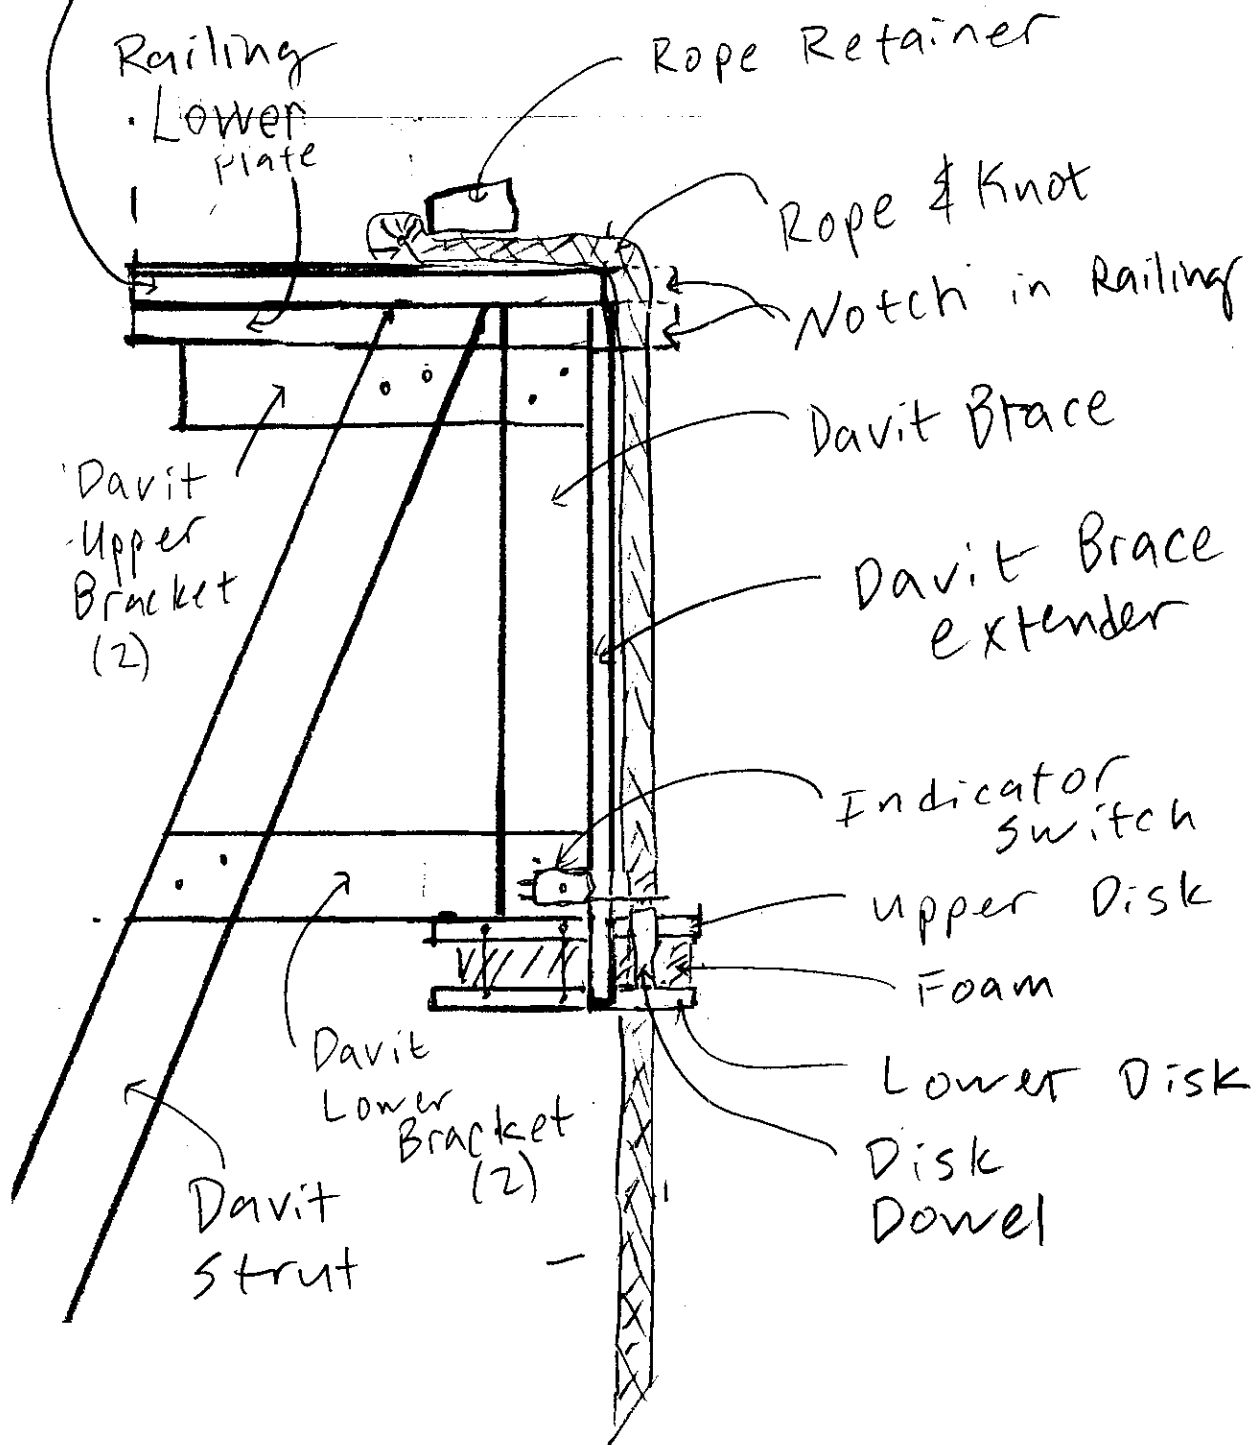 Railing
Lower
Plate
Rope Retainer
Rope & Knot
Notch in Railing
Davit Brace
Davit
Upper
Bracket
(2)
Davit Brace
extender
Indicator
switch
Upper Disk
Foam
Davit
Lower
Bracket
(2)
Lower Disk
Disk
Dowel
Davit
Strut